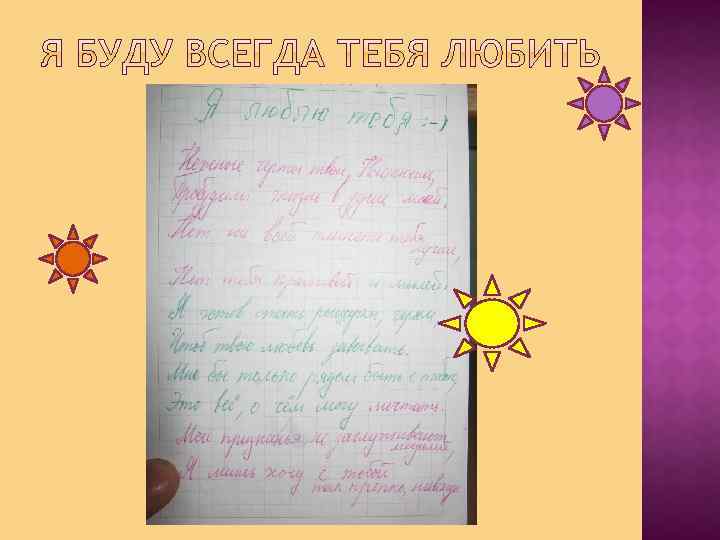 Я БУДУ ВСЕГДА ТЕБЯ ЛЮБИТЬ
Я люблю тебя :-)
Нежные черты твои,
Пробудили жизнь в душе моей.
Нет на всей планете тебя
лучше,
Нет тебя красивей и милей.
Я готов стать рыцарем,
Чтоб твою любовь завоевать.
Мне бы только рядом быть с тобою,
Это всё, о чём могу мечтать.
Мои признанья не заслуживают
медалей,
Я лишь хочу с тобой
так крепко, навсегда